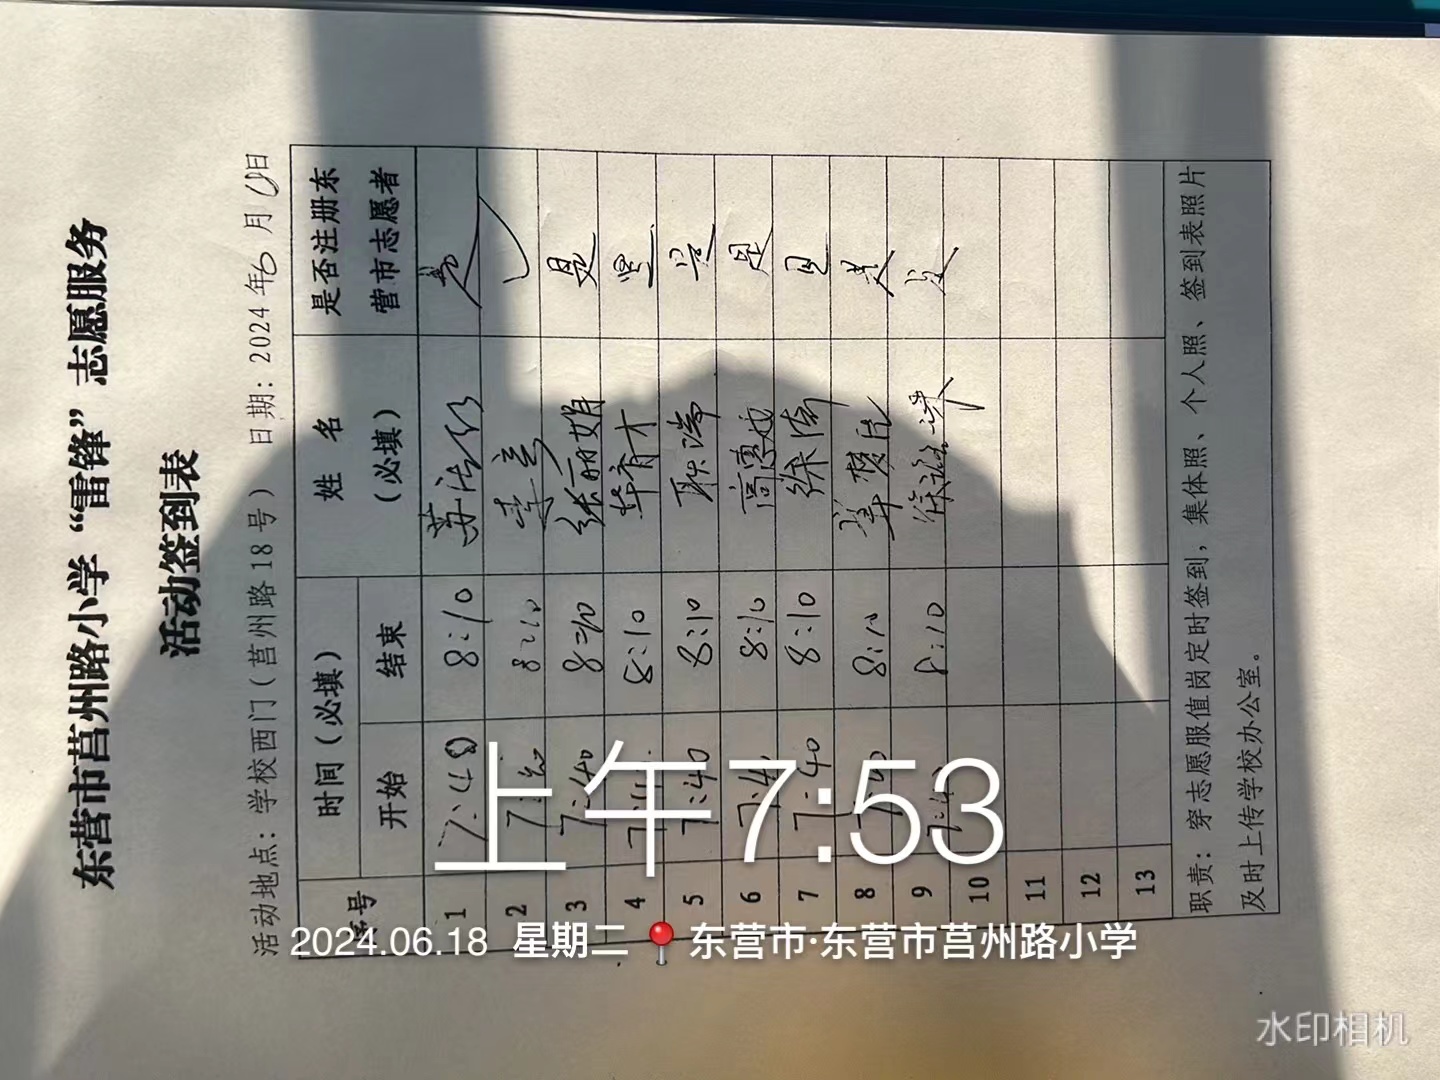 东营市莒州路小学“雷锋”志愿服务
活动签到表
活动地点：学校西门（莒州路18号） 日期：2024年6月 日
序号 时间（必填） 姓 名（必填） 是否注册东营市志愿者
开始 结束
1 7:40 8:10
2 8:10 李亮
3 7:40 8:10 张丽娟 是
4 8:10 毕育才 是
5 7:40 8:10 耿瑞 是
6 8:10 是
7 7:40 8:10 徐倩 是
8 8:10 是
9 8:10 是
10
11
12
13
职责：穿志愿服值岗定时签到，集体照、个人照、签到表照片
及时上传学校办公室。
上午7:53
2024.06.18 星期二 东营市·东营市莒州路小学
水印相机